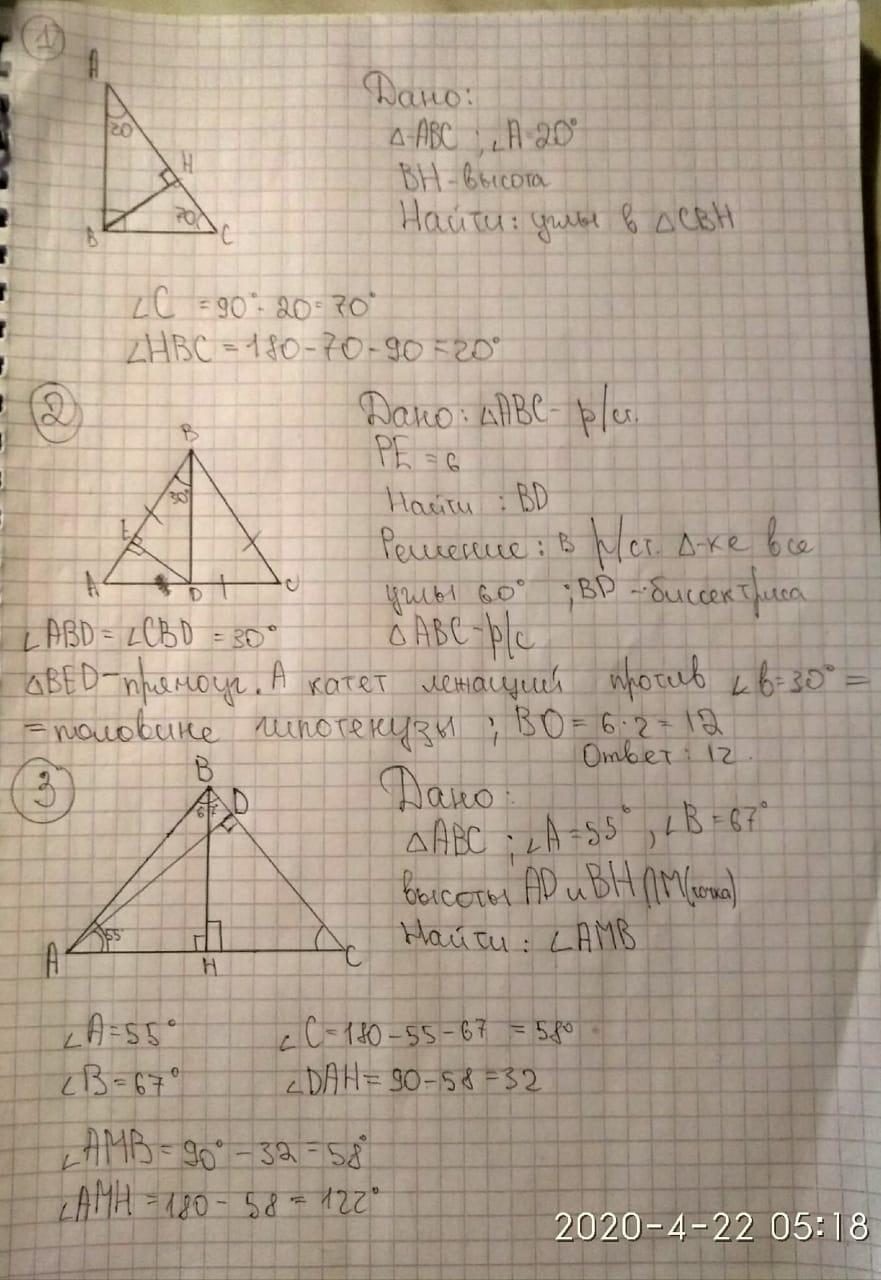 1)
A
20
H
B
70
C
Дано:
△ABC ; ∠A=20°
BH-высота
Найти: углы в △CBH
∠C = 90°- 20= 70°
∠HBC = 180-70-90=20°
2
B
30°
E
A
D
C
Дано: △ABC- р/ст.
РЕ = 6
Найти : BD
Решение: в р/ст. △-ке все
углы 60° ; BD -биссектриса
△ABC-р/с
∠ABD= ∠CBD = 30°
△BED-прямоуг. А катет лежащий против ∠B=30° =
=половине гипотенузы ; BD= 6·2=12
Ответ: 12.
3
B
67
D
A
55
H
C
Дано:
△ABC ; ∠A=55° , ∠B=67°
высоты AD и BH ∩ M(точка)
Найти: ∠AMB
∠A=55° ∠C=180-55-67 = 58°
∠B=67° ∠DAH= 90-58=32
∠AMB= 90° -32=58°
∠AMH =180- 58 = 122°
2020-4-22 05:18